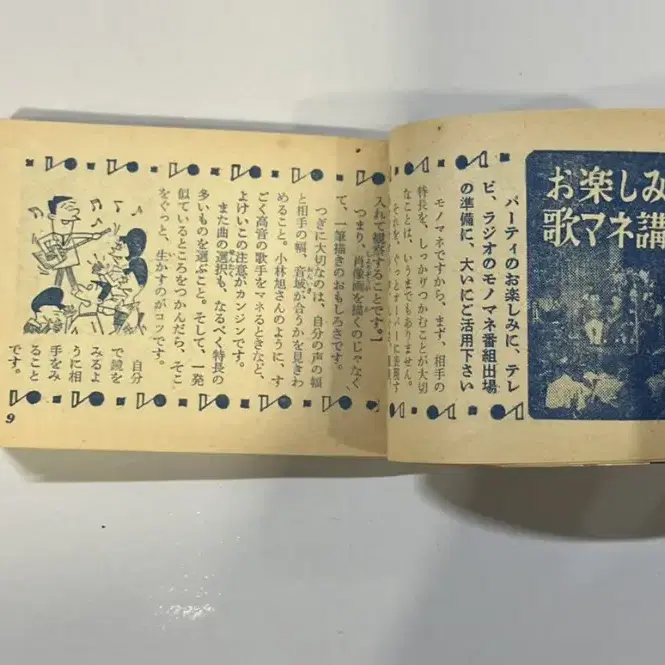 お楽しみ
歌マネ講
パーティのお楽しみに、テレ
ビ、ラジオのモノマネ番組出場
の準備に、大いにご活用下さい
モノマネですから、まず、相手の
特長を、しっかりつかむことが大切
なことは、いうまでもありません。
それを、ぐっとオーバーに表現す
入れて観察することです。
つまり、肖像画を描くのじゃなく
て、一筆描きのおもしろさです。
つぎに大切なのは、自分の声の幅
と相手の幅、音域が合うかを見きわ
めること。小林旭さんのように、す
ごく高音の歌手をマネるときなど、
よけいこの注意がカンジンです。
また曲の選択も、なるべく特長の
多いものを選ぶこと。そして、一発
似ているところをつかんだら、そこ
をぐっと、生かすのがコツです。
自分
で鏡を
みるよ
うに相
手をみ
ること
です。
9